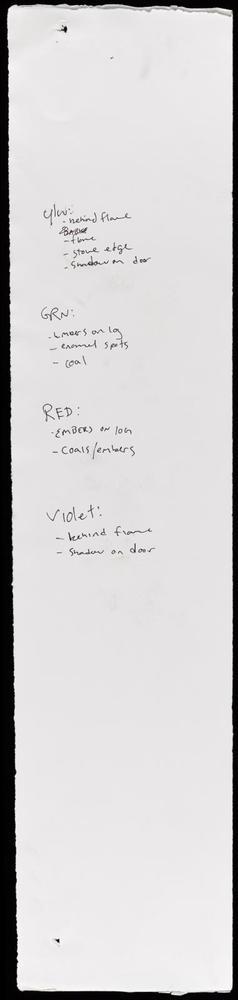 ylw:
- behind flame
- flame
- stove edge
- shadow on door
GRN:
- embers on log
- enamel spots
- coal
RED:
- EMBERS ON log
- Coals/embers
Violet:
- behind flame
- shadow on door